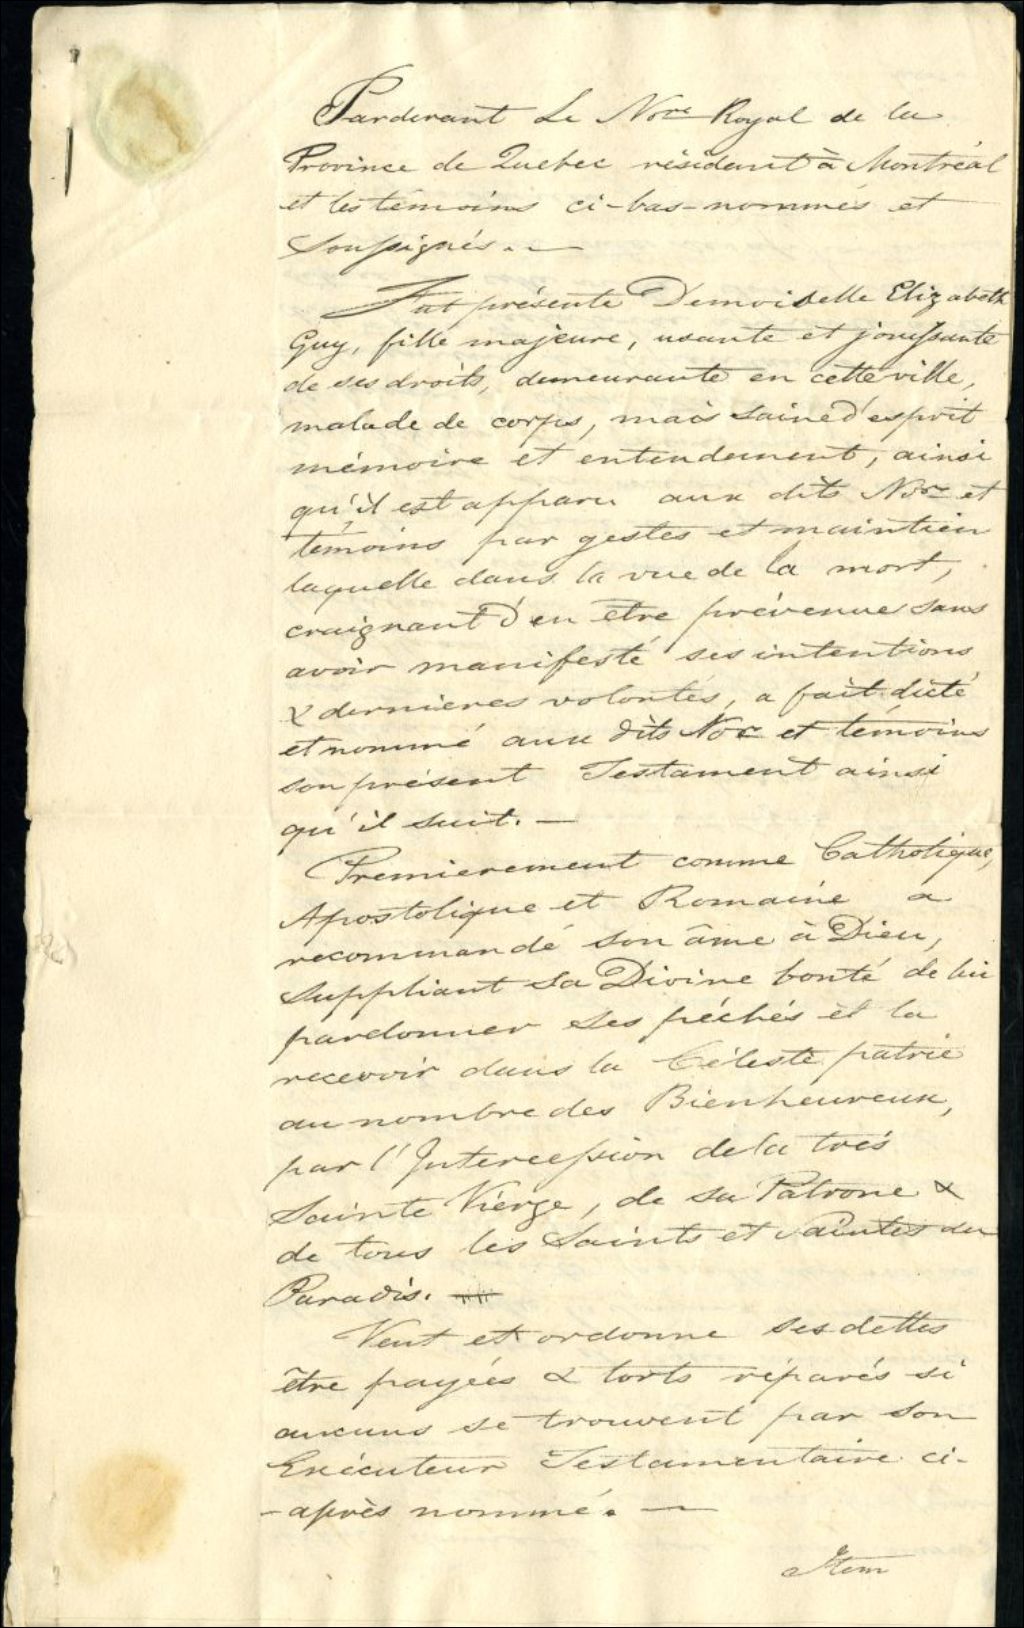 Pardevant Le Nore Royal de la
Province de Quebec résidant à Montréal
et les témoins ci-bas-nommés et
Soussignés. —
Fut présente Demoiselle Elizabeth
Guy, fille majeure, usante et jouissante
de ses droits, demeurante en cette ville,
malade de corps, mais saine d'esprit
mémoire et entendement, ainsi
qu'il est apparu aux dits Nore et
témoins par gestes et maintien
laquelle dans la vue de la mort,
craignant d'en être prévenue sans
avoir manifesté ses intentions
& dernieres volontés, a fait dicté
et nommé aux dits Nore et témoins
son présent Testament ainsi
qu'il suit. —
Premierement comme Catholique,
Apostolique et Romaine a
recommandé son âme à Dieu,
suppliant sa Divine bonté de lui
pardonner ses péchés et la
recevoir dans la Céleste patrie
au nombre des Bienheureux,
par l'Intercession de la trés
Sainte Vierge, de sa Patrone &
de tous les Saints et saintes du
Paradis.
Veut et ordonne ses dettes
être payées & torts réparés si
aucuns se trouvent par son
Exécuteur Testamentaire ci-
-après nommé. —
Item